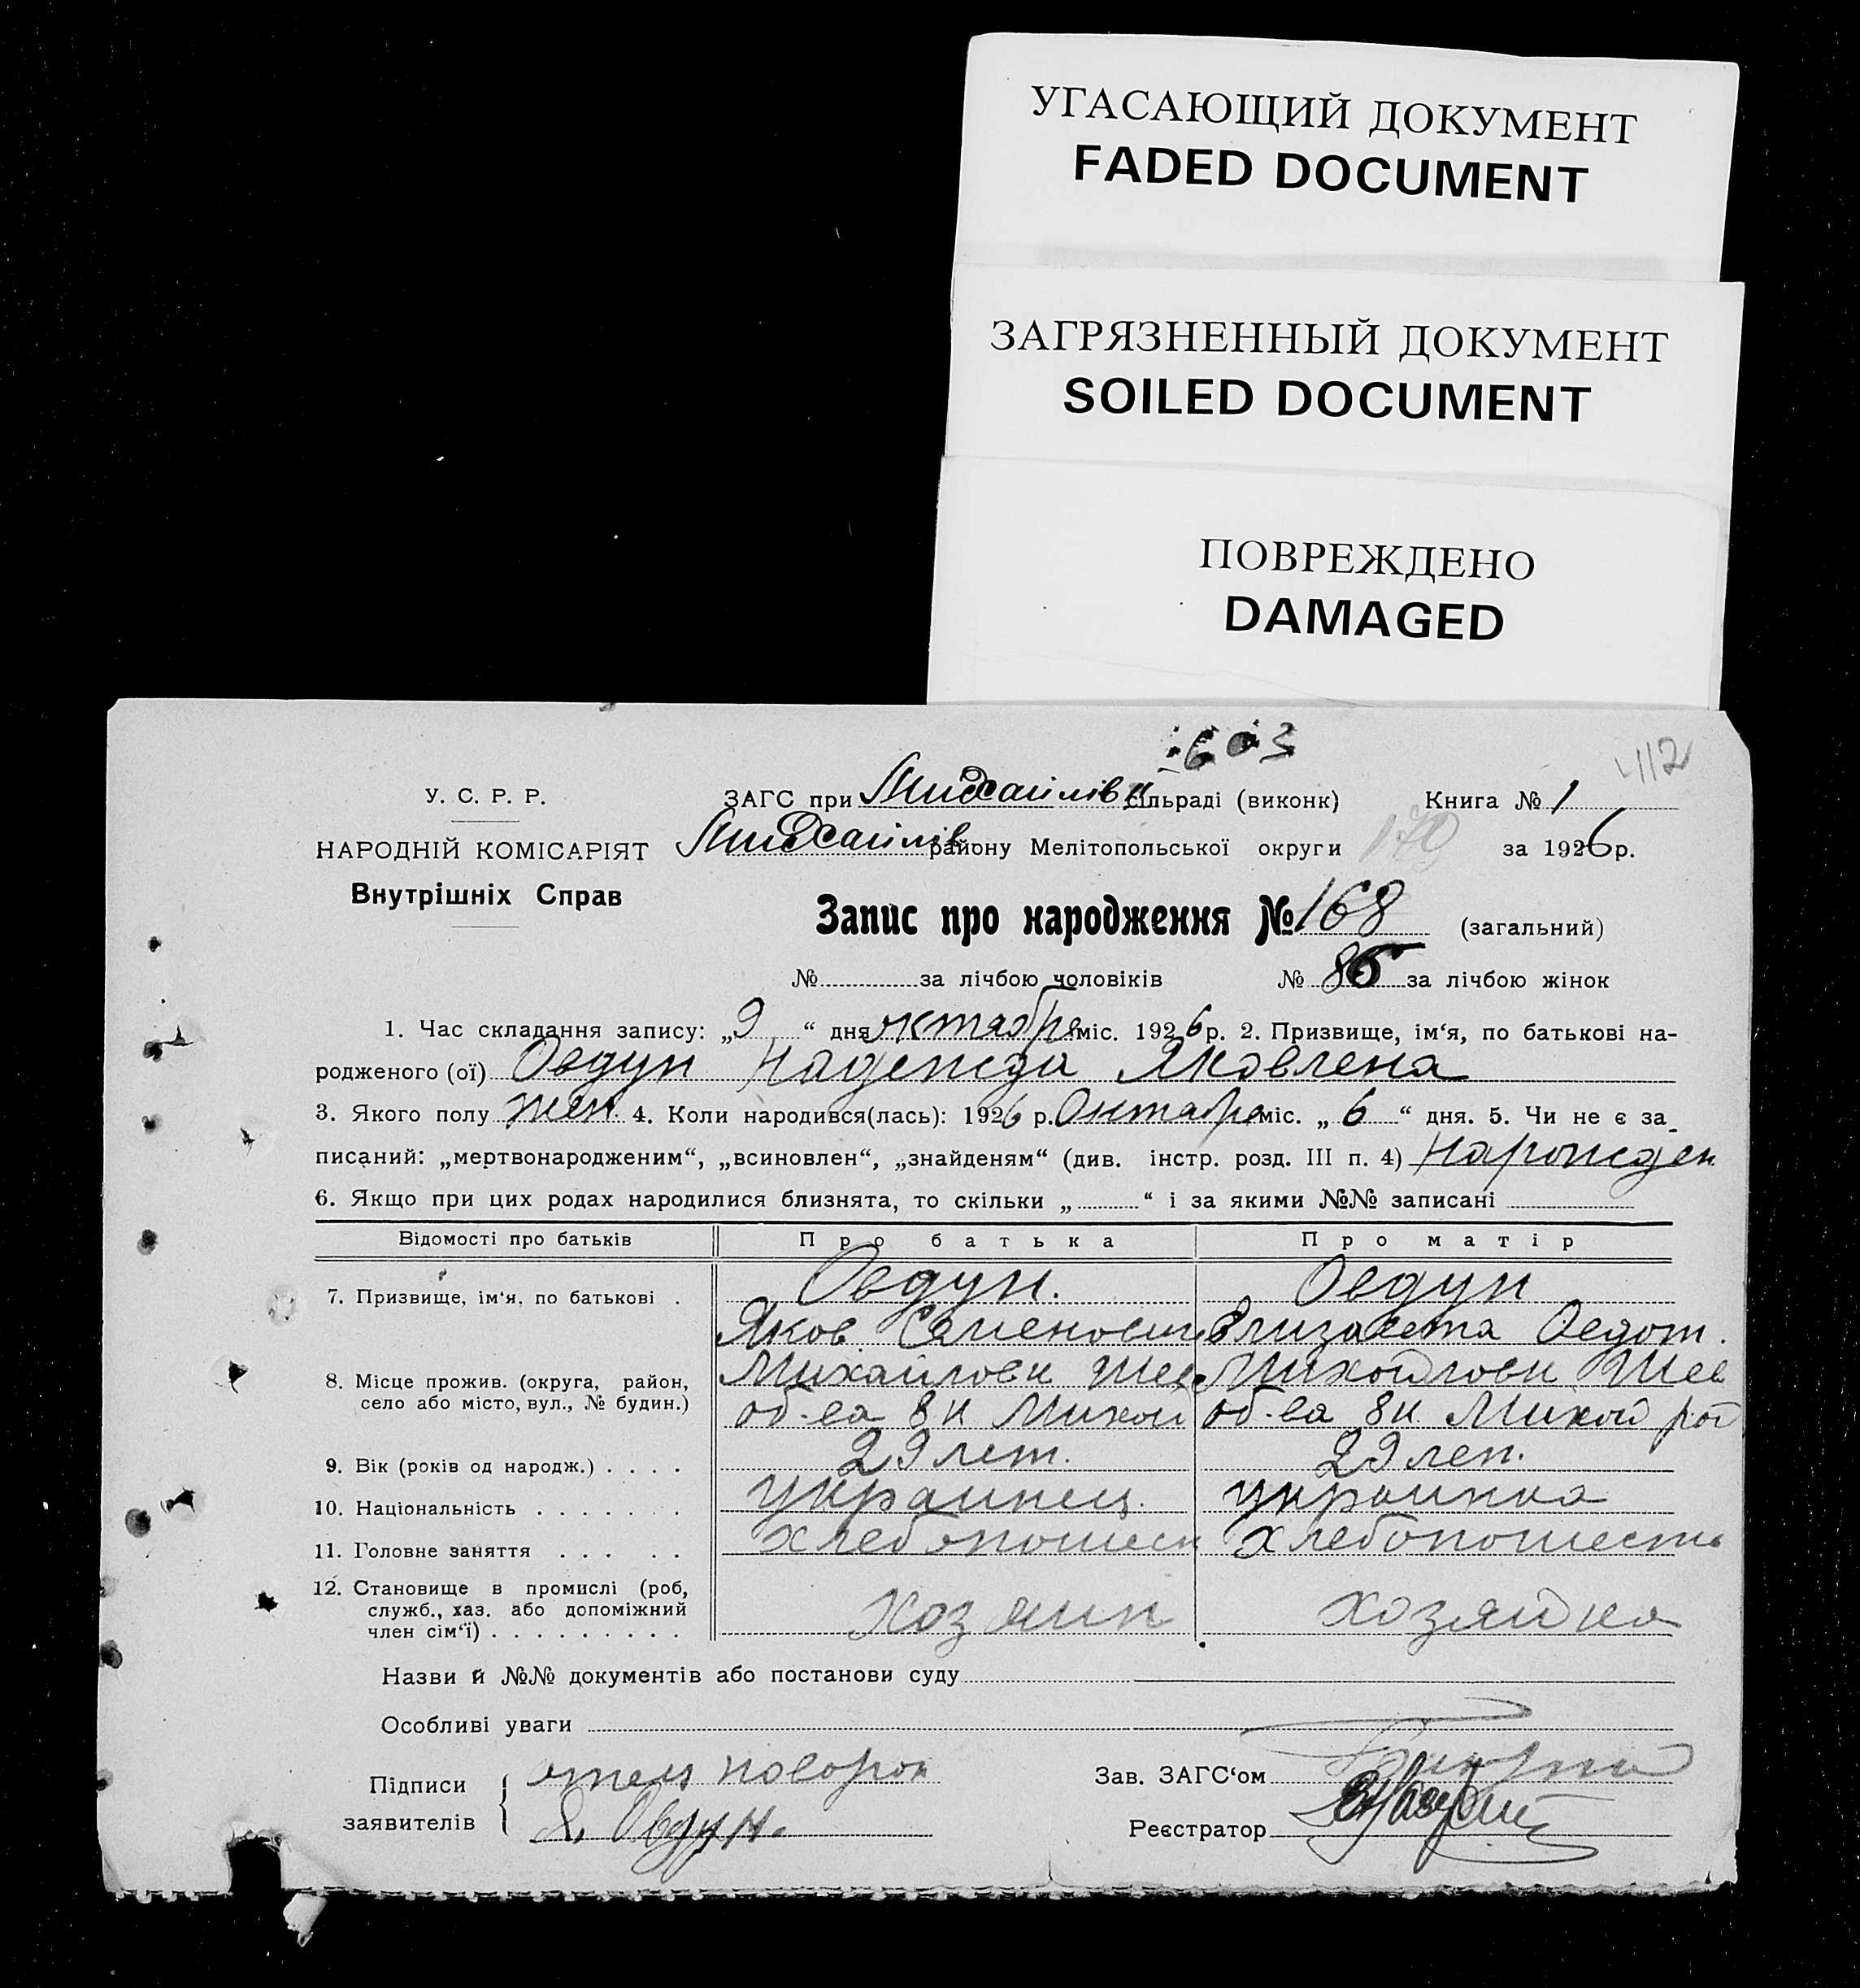 УГАСАЮЩИЙ ДОКУМЕНТ
FADED DOCUMENT
ЗАГРЯЗНЕННЫЙ ДОКУМЕНТ
SOILED DOCUMENT
ПОВРЕЖДЕНО
DAMAGED
603
112
У. С. Р. Р.
ЗАГС при Михайлівк сільраді (виконк) Книга № 1
НАРОДНІЙ КОМІСАРІЯТ
Михайлів. району Мелітопольської округи 170 за 1926 р.
Внутрішніх Справ
Запис про народження № 168 (загальний)
№ за лічбою чоловіків № 86 за лічбою жінок
1. Час складання запису: „9“ дня октября міс. 1926 р. 2. Призвище, ім‘я, по батькові на-
родженого (ої) Овдун Надежда Яковлена
3. Якого полу жен. 4. Коли народився(лась): 1926 р. Октября міс. „6“ дня. 5. Чи не є за-
писаний: „мертвонародженим“, „всиновлен“, „знайденям“ (див. інстр. розд. III п. 4) нарожден
6. Якщо при цих родах народилися близнята, то скільки „ “ і за якими №№ записані
Відомості про батьків Про батька Про матір
7. Призвище, ім‘я, по батькові . Овдун. Овдун
Яков Семенович Елизавета Федот.
8. Місце прожив. (округа, район, Михайловк Шев Михойловк Шев
село або місто, вул., № будин.) об-ва 8 к Михой об-ва 8 к Михой
9. Вік (років од народж.) . . . . 29 лет. 29 лет.
10. Національність . . . . . . . украинец. украинка
11. Головне заняття . . . . . хлебопашест хлебопошесть
12. Становище в промислі (роб,
служб., хаз. або допоміжний
член сім‘ї) . . . . . . . . . хозяин хозяйка
Назви й №№ документів або постанови суду
Особливі уваги
Підписи отец новорож
заявителів Я. Овдун.
Зав. ЗАГС‘ом
Реєстратор